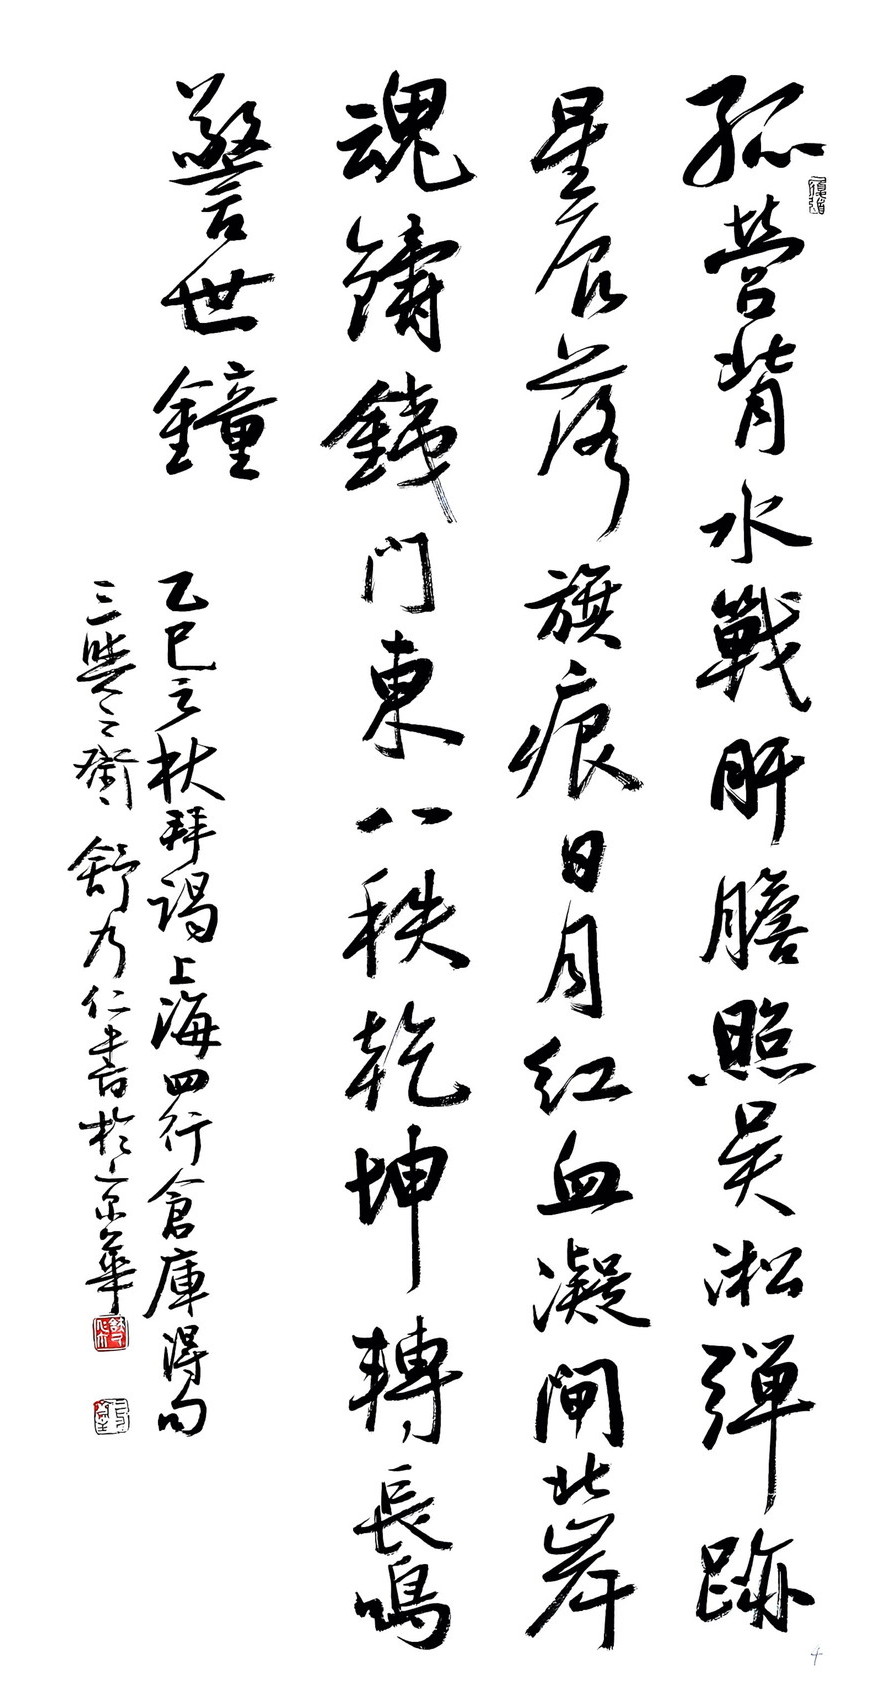 孤營背水戰肝膽照吳淞彈跡
星辰落旗痕日月紅血凝閘北岸
魂鑄鐵門東八秩乾坤轉長鳴
警世鐘
乙巳之秋拜謁上海四行倉庫得句
三學之齋舒乃仁書於京華